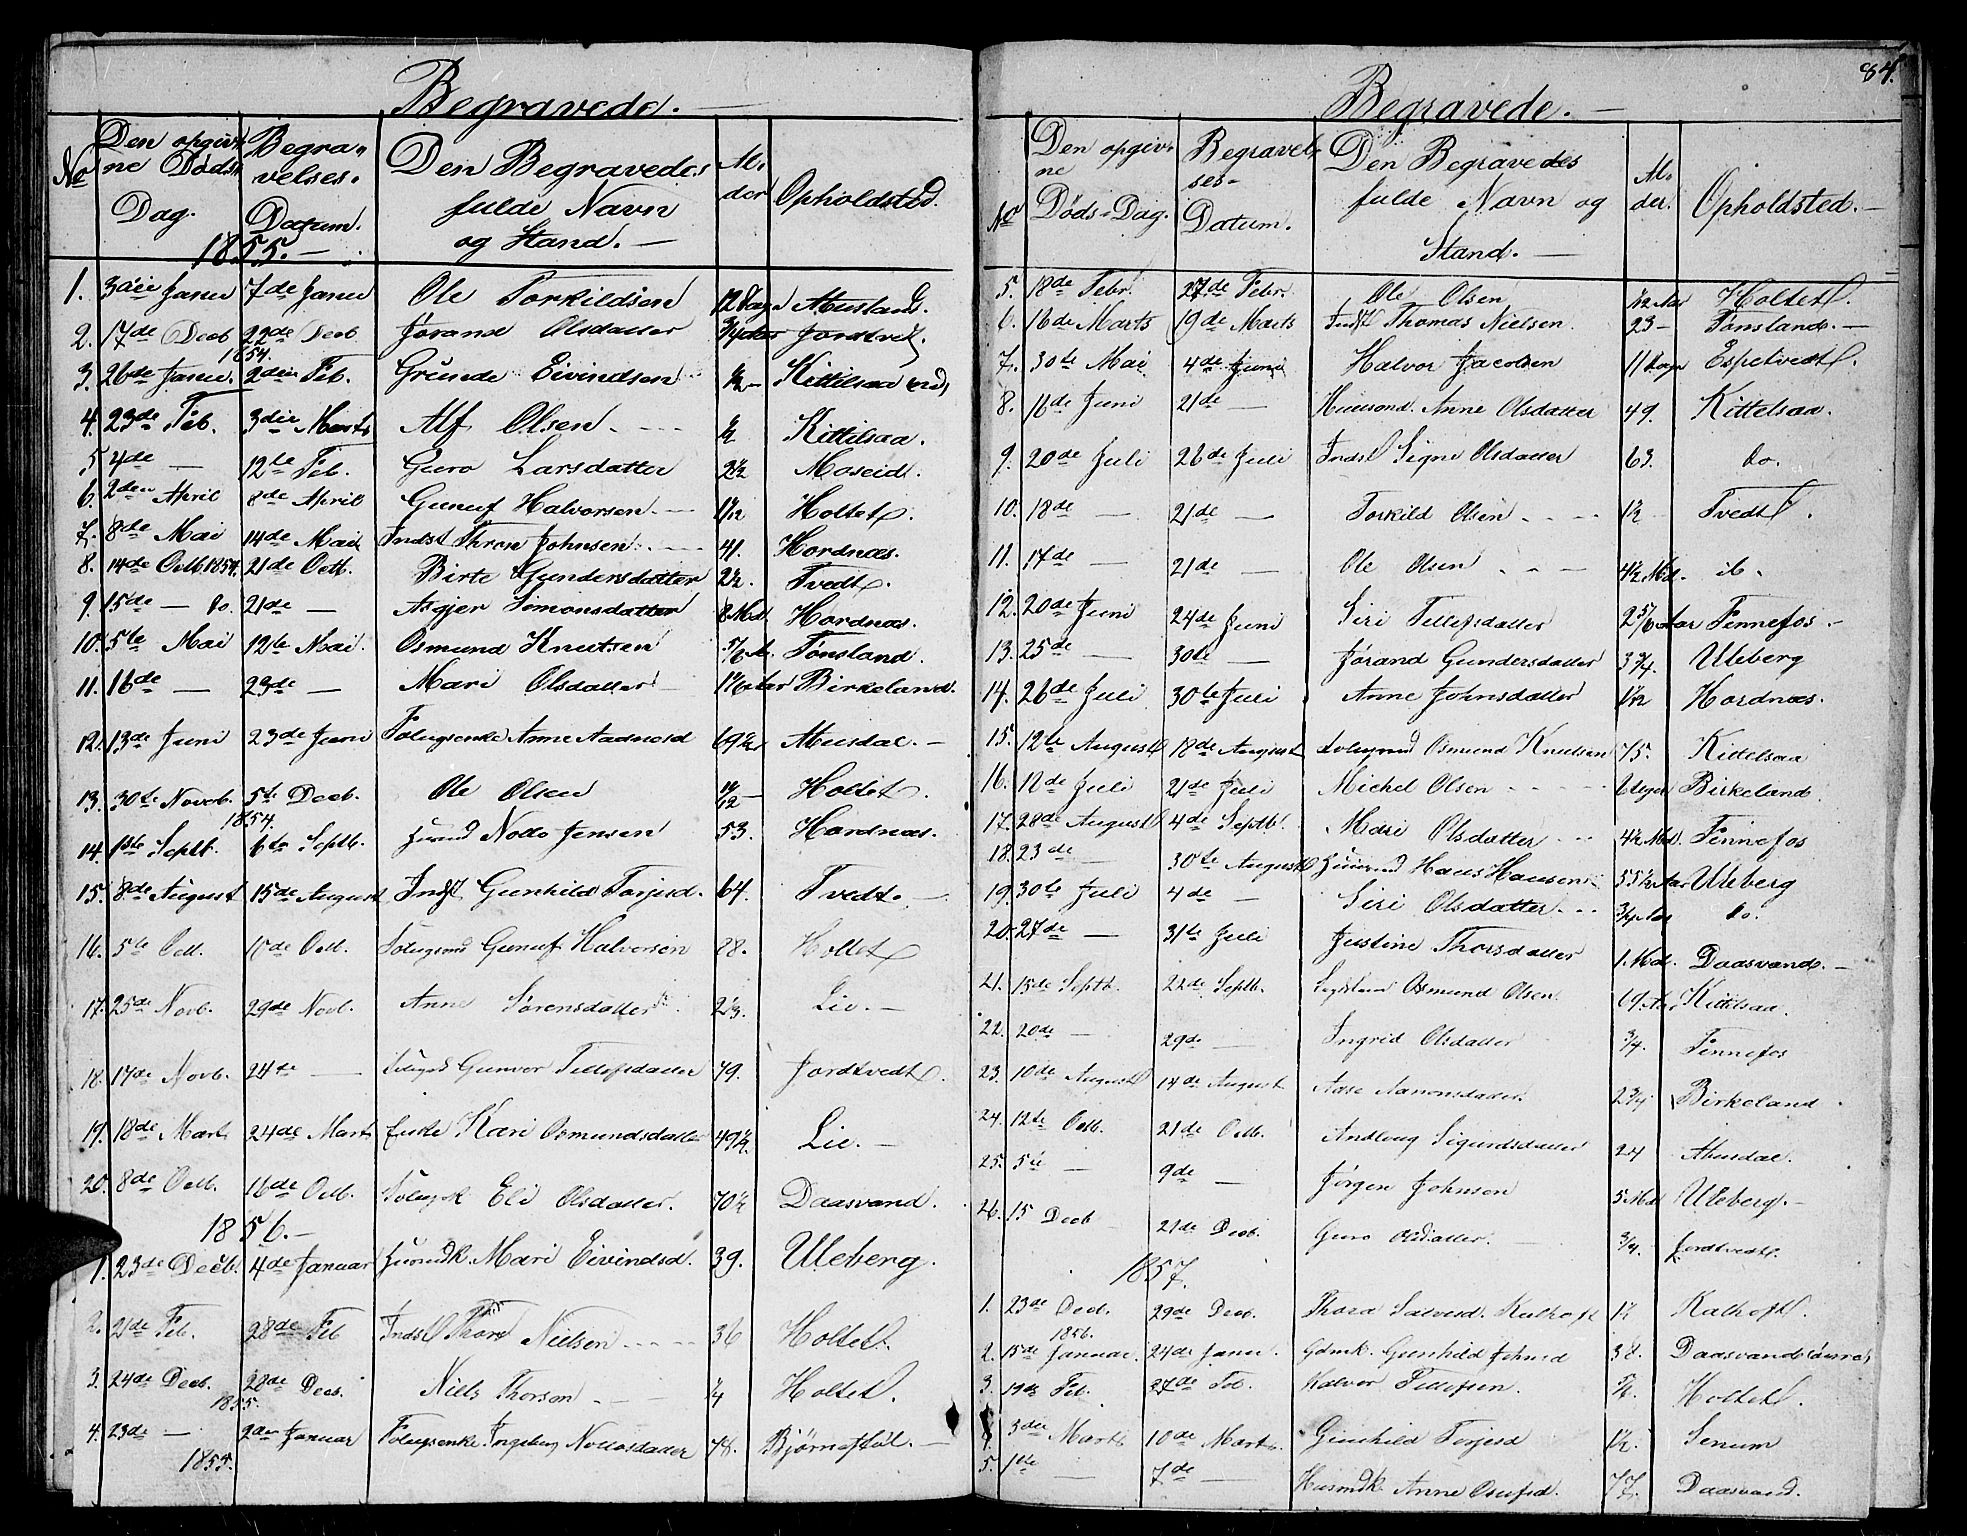 84.
Begravede. —
No
Den opgivne Døds Dag.
Begravelses. Datum.
Den Begravedes fulde Navn og Stand. —
Alder
Opholdsted.
1855. —
1. 3die Janu 7de Janu Ole Torkildsen 12 Dage
2. 17de Decb 22de Decb Jørand Olsdatter Jordtvedt
1854.
3. 26de Janu. 2den Feb. Grunde Eivindsen ½ — Kittilsaa
4. 23de Feb. 3die Marts Alf Olsen. ½ Kittilsaa.
5 4de — 12te Feb. Guro Larsdatter 2½ Moseid.
6. 2den April 8de April Gunuf Halvorsen. — Holtet.
7. 8de Mai 14de Mai Indst Thron Johnsen. 41. Hordnæs.
8. 14de Octb. 1854. 21de Octb. Birte Gundersdatter 2½. Tvedt.
9. 15de — do. 21de — Asgjer Simonsdatter 8 Md. Hordnæs.
10. 5te Mai 12te Mai. Osmund Knutsen Tønsland.
11. 16de — 23de — Mari Olsdatter Birkeland.
12. 13de Juni 23de Juni Anne Aadnesd 69½ Ahusdal. —
13. 30te Novb. 5te Decb. Ole Olsen Holtet.
1854.
14. 1ste Septb. 6te Septb. Jensen 53. Hordnæs.
15. 8de August 15de August Indst Gunhild Torjesd. 64. Tvedt. —
16. 5te Octb. 10de Octb. Gunuf Halvorsen 28. Holtet
17. 25de Novb. 29de Novb. Anne Sørensdatter Lie. —
18. 17de Novb. 24de — Gunvor Tellefsdatter 79. Jordtvedt.
19. 18de Marts 24de Marts Enke Kari Osmundsdatter 49½. Lie. —
20. 8de Octb. 16de Octb. Eli Olsdatter. 70½ Daasvand.
1856. —
1. 23de Decb. 4de Januar Mari Eivindsd. 39. Uleberg.
2. 21de Feb. 28de Feb Indst Thore Nielsen 36 Holtet.
3. 24de Decb. 28de Decb. Niels Thorsen ¼ Holtet.
1855.
4. 23de — 2den Januar Ingeborg 78. —
1855.
Begravede. —
No
Den opgivne Døds-Dag.
Begravelses- Datum.
Den Begravedes fulde Navn og Stand. —
Alder.
Opholdsted. —
5. 18de Febr. 27de Febr. Ole Olsen Holtet.
6. 16de Marts 19de Marts Indst Thomas Nielsen. 23 — Tønsland. —
7. 30te Mai 4de Juni Halvor Jacobsen 11 Dage Espetvedt.
8. 16de Juni 21de — Anne Olsdatter 49. Kittelsaa.
9. 20de Juli 26de Juli Indst Signe Olsdatter 63. do.
10. 18de — 21de — Torkild Olsen 1½ Tvedt.
11. 17de — 21de — Ole Olsen 4½ Md. ib.
12. 20de Juni 24de Juni Siri Tellefsdatter 2 5/6 Aar Fennefos. —
13. 25de — 30te — Jørand Gundersdatter 3¾. Uleberg
14. 26de Juli 30te Juli Anne Johnsdatter Hordnæs.
15. 12te August 18de August Osmund Knutsen 75. Kittelsaa
16. Juli 21de Juli Michel Olsen Birkeland.
17. 28de August 4de Septb. Mari Olsdatter 4½ Md. Fennefos
18. 23de — 30te August Hans Hansen 55½ Aar Uleberg
19. 30te Juli 4de — Siri Olsdatter ¾ Aar do.
20. 27de — 31te Juli Justine Thorsdatter 1. Md. Daasvand. —
21. 15de Septb. 22de Septb. Osmund Olsen. 69. Aar Kittelsaa.
22. 20de — 29de — Ingrid Olsdatter ¾. Fennefos
23. 10de August 14de August Aase Aanonsdatter. 2¾ Birkeland.
24. 12te Octb. 21de Octb. Andlaug Sigurdsdatter 24 Ahusdal.
25. 5te — 9de — Jørgen Johnsen 5 Md Uleberg. —
26. 15 Decb 21de Decb. Guro Olsdatter. ¾. Jordtvedt.
1857.
1. 23de Decb. 29de Decb. Thora Salvesd. Kalhoft Kalhoft.
1856.
2. 15de Januar. 24de Janu. Gdmk. Gunhild Johnsd 38. Daasvand
3. 19de Feb. 27de Feb. Halvor Tellefsen. Holtet.
4. 3die Marts 10de Marts. Gunhild Torjesd 1½. Senum
5. 1ste — 7de — Husmdk. Anne 77. Daasvand.